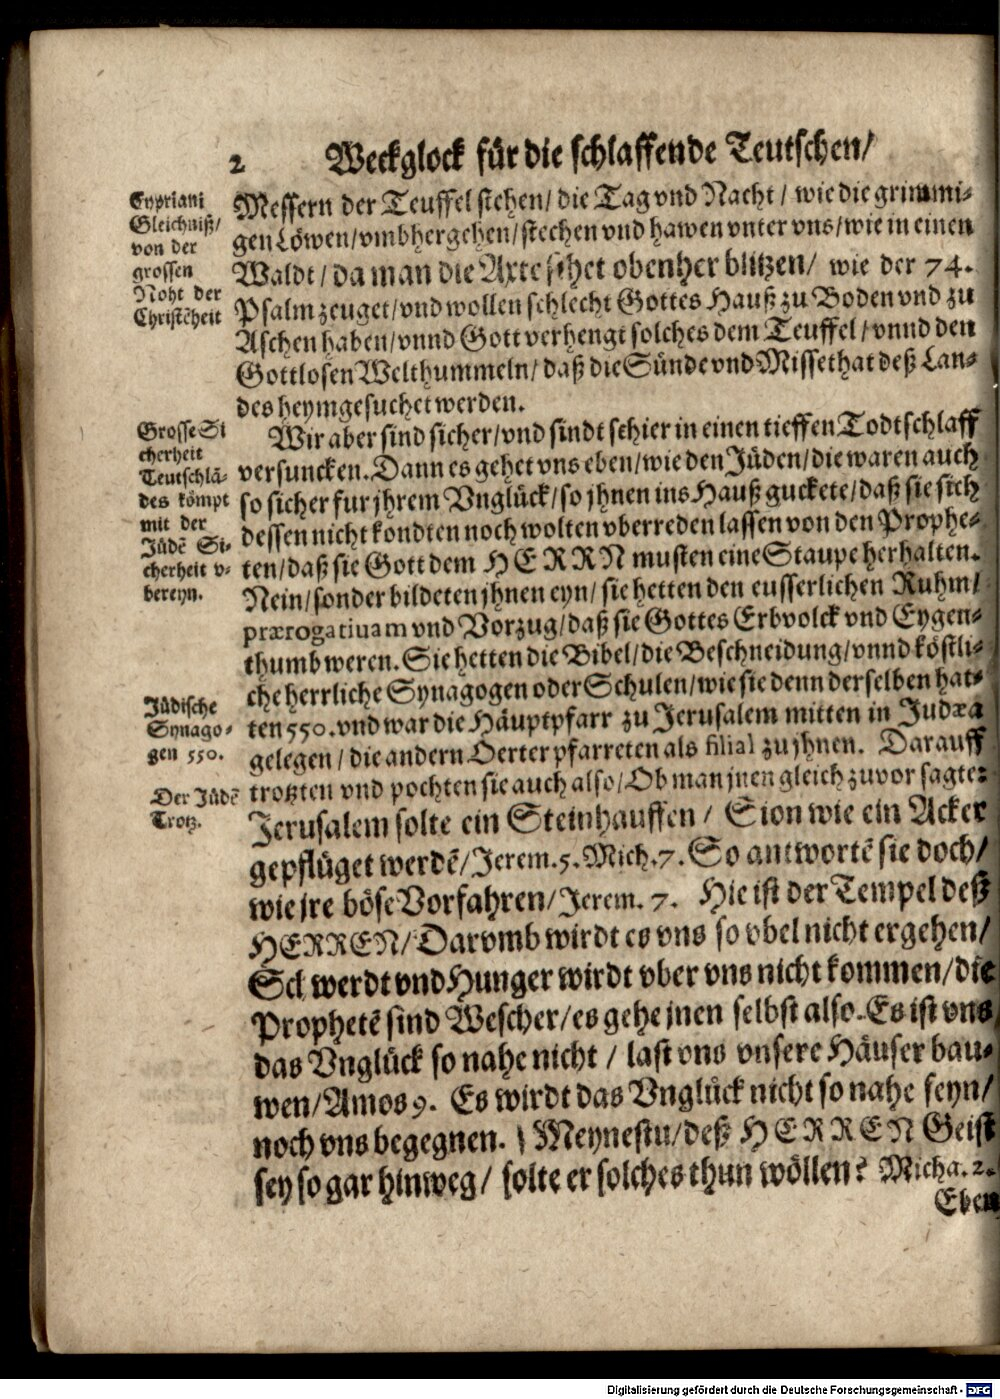 2 Weckglock für die schlaffende Teutschen/
Cypriani
Gleichniß/
von der
grossen
Noht der
Christēheit
Messern der Teuffel stehen/ die Tag vnd Nacht / wie die grimmi-
gen Löwen/ vmbher gehen/ stechen vnd hawen vnter vns/ wie in einen
Waldt/ da man die Axte sihet obenher blitzen/ wie der 74.
Psalm zeuget/ vnd wollen schlecht Gottes Hauß zu Boden vnd zu
Aschen haben/ vnnd Gott verhengt solches dem Teuffel/ vnnd den
Gottlosen Welthummeln/ daß die Sünde vnd Missethat deß Lan-
des heymgesuchet werden.
Grosse Si
cherheit
Teutschlā-
des kömpt
mit der
Jüdē Si-
cherheit v-
bereyn.
Wir aber sind sicher/ vnd sindt schier in einen tieffen Todtschlaff
versuncken. Dann es gehet vns eben/ wie den Jüden/ die waren auch
so sicher fur jhrem Vnglück/ so jhnen ins Hauß guckete/ daß sie sich
dessen nicht kondten noch wolten vberreden lassen von den Prophe-
ten/ daß sie Gott dem HERRN musten eine Staupe herhalten.
Nein/ sonder bildeten jhnen eyn/ sie hetten den eusserlichen Ruhm/
prærogatiuam vnd Vorzug/ daß sie Gottes Erbvolck vnd Eygen-
thumb weren. Sie hetten die Bibel/ die Beschneidung/ vnnd köstli-
che herrliche Synagogen oder Schulen/ wie sie denn derselben hat-
Jüdische
Synago-
gen 550.
ten 550. vnd war die Häuptpfarr zu Jerusalem mitten in Judæa
gelegen/ die andern Oerter pfarreten als filial zu jhnen. Darauff
Der Jüdē
Trotz.
trotzten vnd pochten sie auch also/ Ob man jnen gleich zuvor sagte:
Jerusalem solte ein Steinhauffen / Sion wie ein Acker
gepflüget werdē/ Jerem. 5. Mich. 7. So antwortē sie doch/
wie jre böse Vorfahren/ Jerem. 7. Hie ist der Tempel deß
HERREN/ Darvmb wirdt es vns so vbel nicht ergehen/
Schwerdt vnd Hunger wirdt vber vns nicht kommen/ die
Prophetē sind Wescher/ es gehe jnen selbst also. Es ist vns
das Vnglück so nahe nicht / last vns vnsere Häuser bau-
wen/ Amos 9. Es wirdt das Vnglück nicht so nahe seyn/
noch vns begegnen. Meynestu/ deß HERREN Geist
sey so gar hinweg/ solte er solches thun wöllen? Micha. 2.
Eben
Digitalisierung gefördert durch die Deutsche Forschungsgemeinschaft - DFG